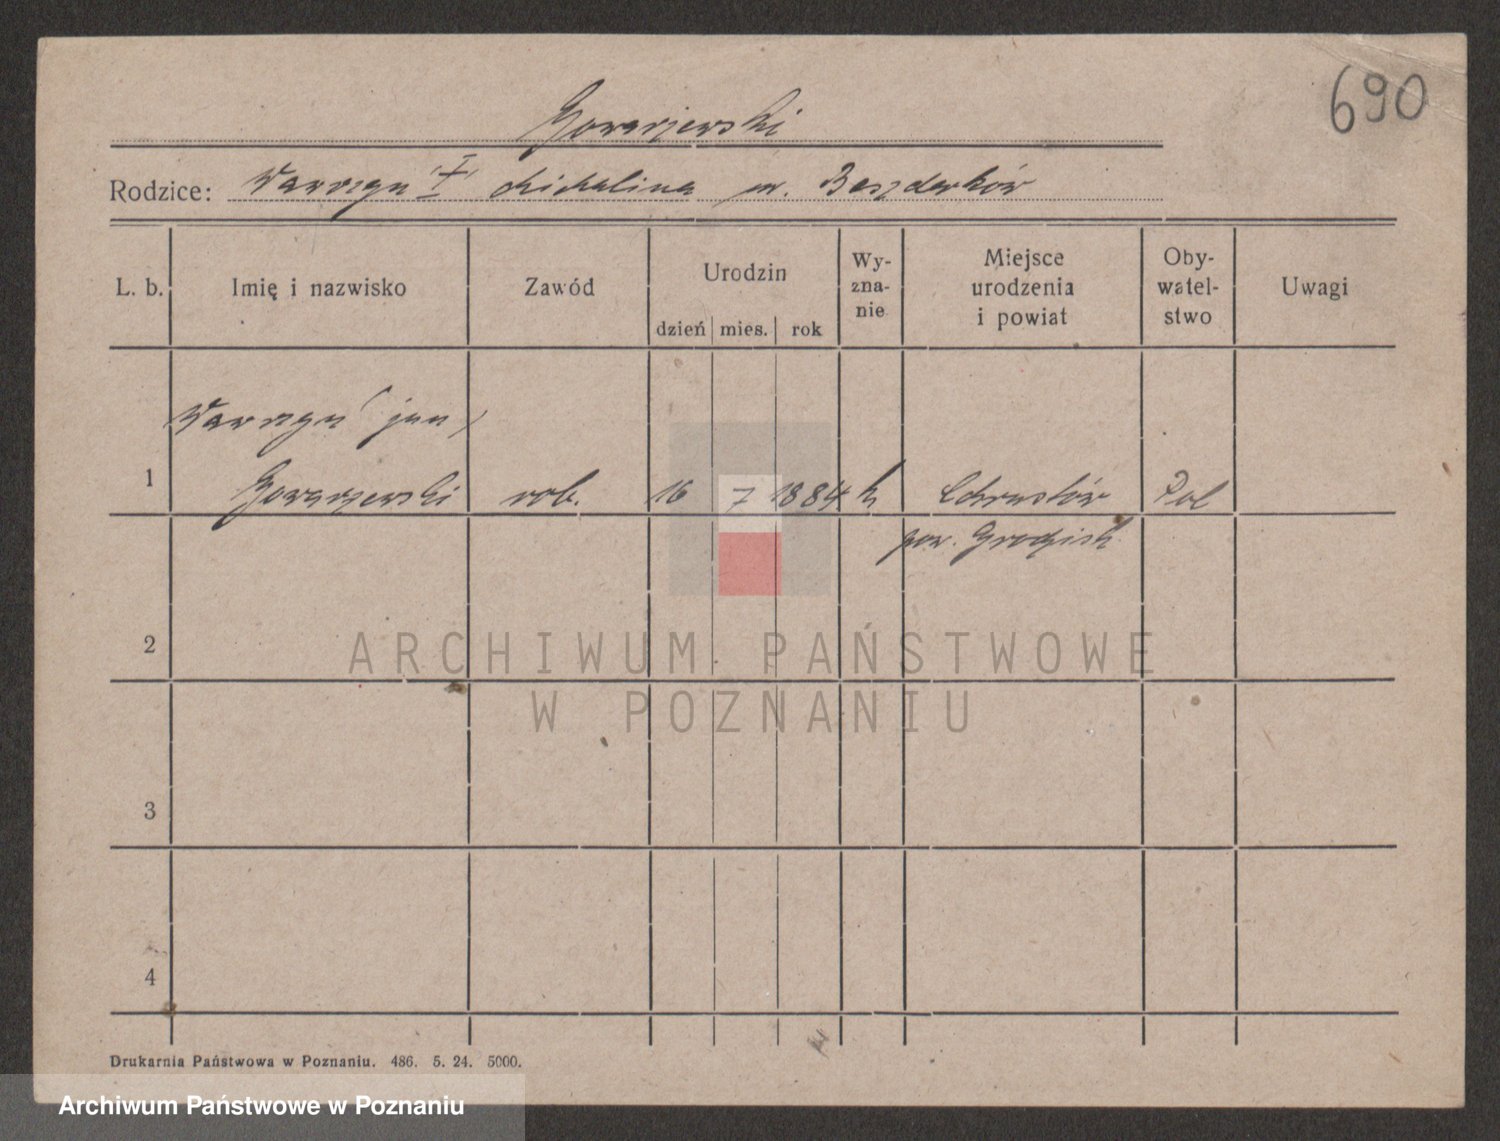 690
Gowarzewski
Rodzice: Wawrzyn I Michalina
L. b. Imię i nazwisko Zawód Urodzin dzień mies. rok Wy-zna-nie Miejsce urodzenia i powiat Oby-watel-stwo Uwagi
Wawrzyn (jun)
1 Gowarzewski rob. 16 7 1884 k Pol
pow. Grodzisk
2
3
4
ARCHIWUM PAŃSTWOWE
W POZNANIU
Drukarnia Państwowa w Poznaniu. 486. 5. 24. 5000.
Archiwum Państwowe w Poznaniu